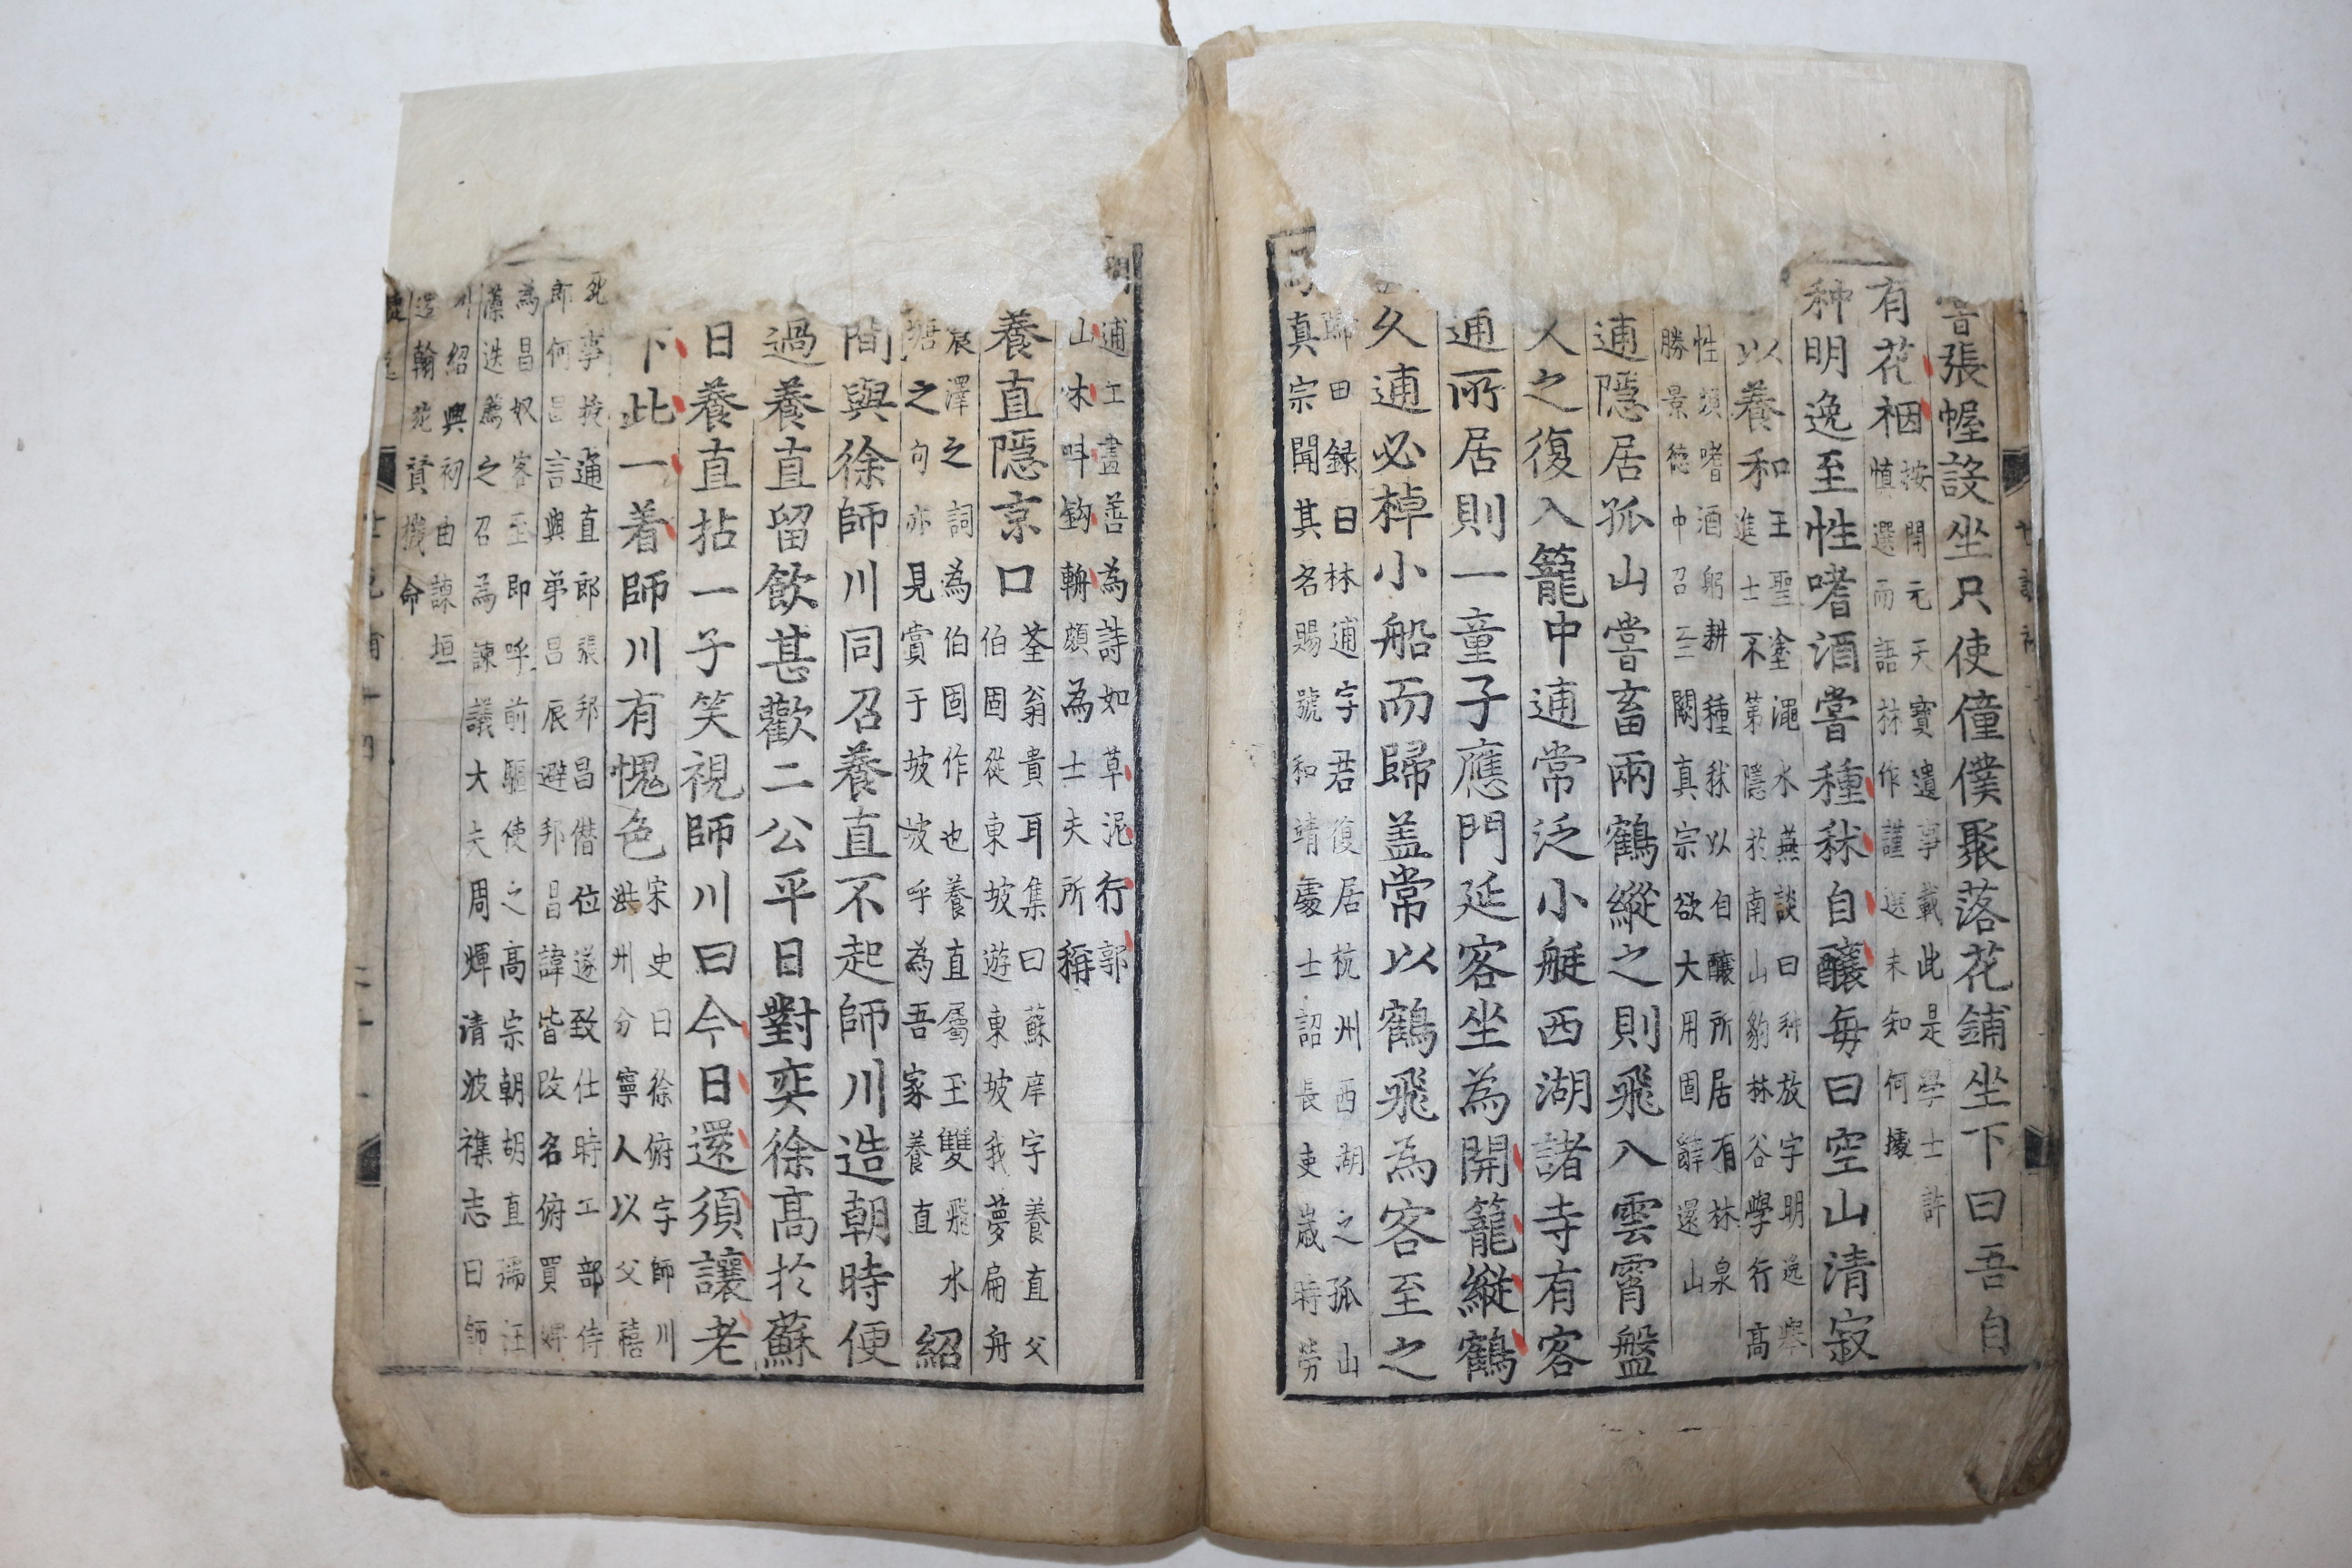 嘗張幄設坐只使僮僕聚落花鋪坐下曰吾自
有花裀
按開元天寶遺事載此是學士許
慎選而語林作謹選未知何據
种明逸至性嗜酒嘗種秫自釀每曰空山清寂
以養和
王聖塗澠水燕談曰种放字明逸舉
進士不第隱於南山豹林谷學行高
性頗嗜酒躬耕種秫以自釀所居有林泉
勝景德中召三闕真宗欲大用固辭還山
逋隱居孤山嘗畜兩鶴縱之則飛入雲霄盤
久之復入籠中逋常泛小艇西湖諸寺有客
逋所居則一童子應門延客坐為開籠縱鶴
久逋必棹小船而歸盖常以鶴飛為客至之
歸田録曰林逋字君復居杭州西湖之孤山
真宗聞其名賜號和靖處士詔長吏歲時勞
逋工畫善為詩如草泥行郭
山林呌鉤輈頗為士夫所稱
養直隱京口
荃翁貴耳集曰蘇庠字養直父
伯固從東坡遊東坡我夢扁舟
震澤之詞為伯固作也養直屬玉雙飛水
塘之句亦見賞于坡坡呼為吾家養直
紹
間與徐師川同召養直不起師川造朝時便
過養直留飲甚歡二公平日對奕徐高於蘇
日養直拈一子笑視師川曰今日還須讓老
下此一着師川有愧色
宋史曰徐俯字師川
洪州分寧人以父禧
死事授通直郎張邦昌僭位遂致仕時工部侍
郎何昌言與弟昌辰避邦昌諱皆改名俯買婢
為昌奴客至即呼前驅使之高宗朝胡直孺汪
藻迭薦之召為諫議大夫周煇清波襍志曰師
川紹興初由諫垣
遷翰苑賛機命